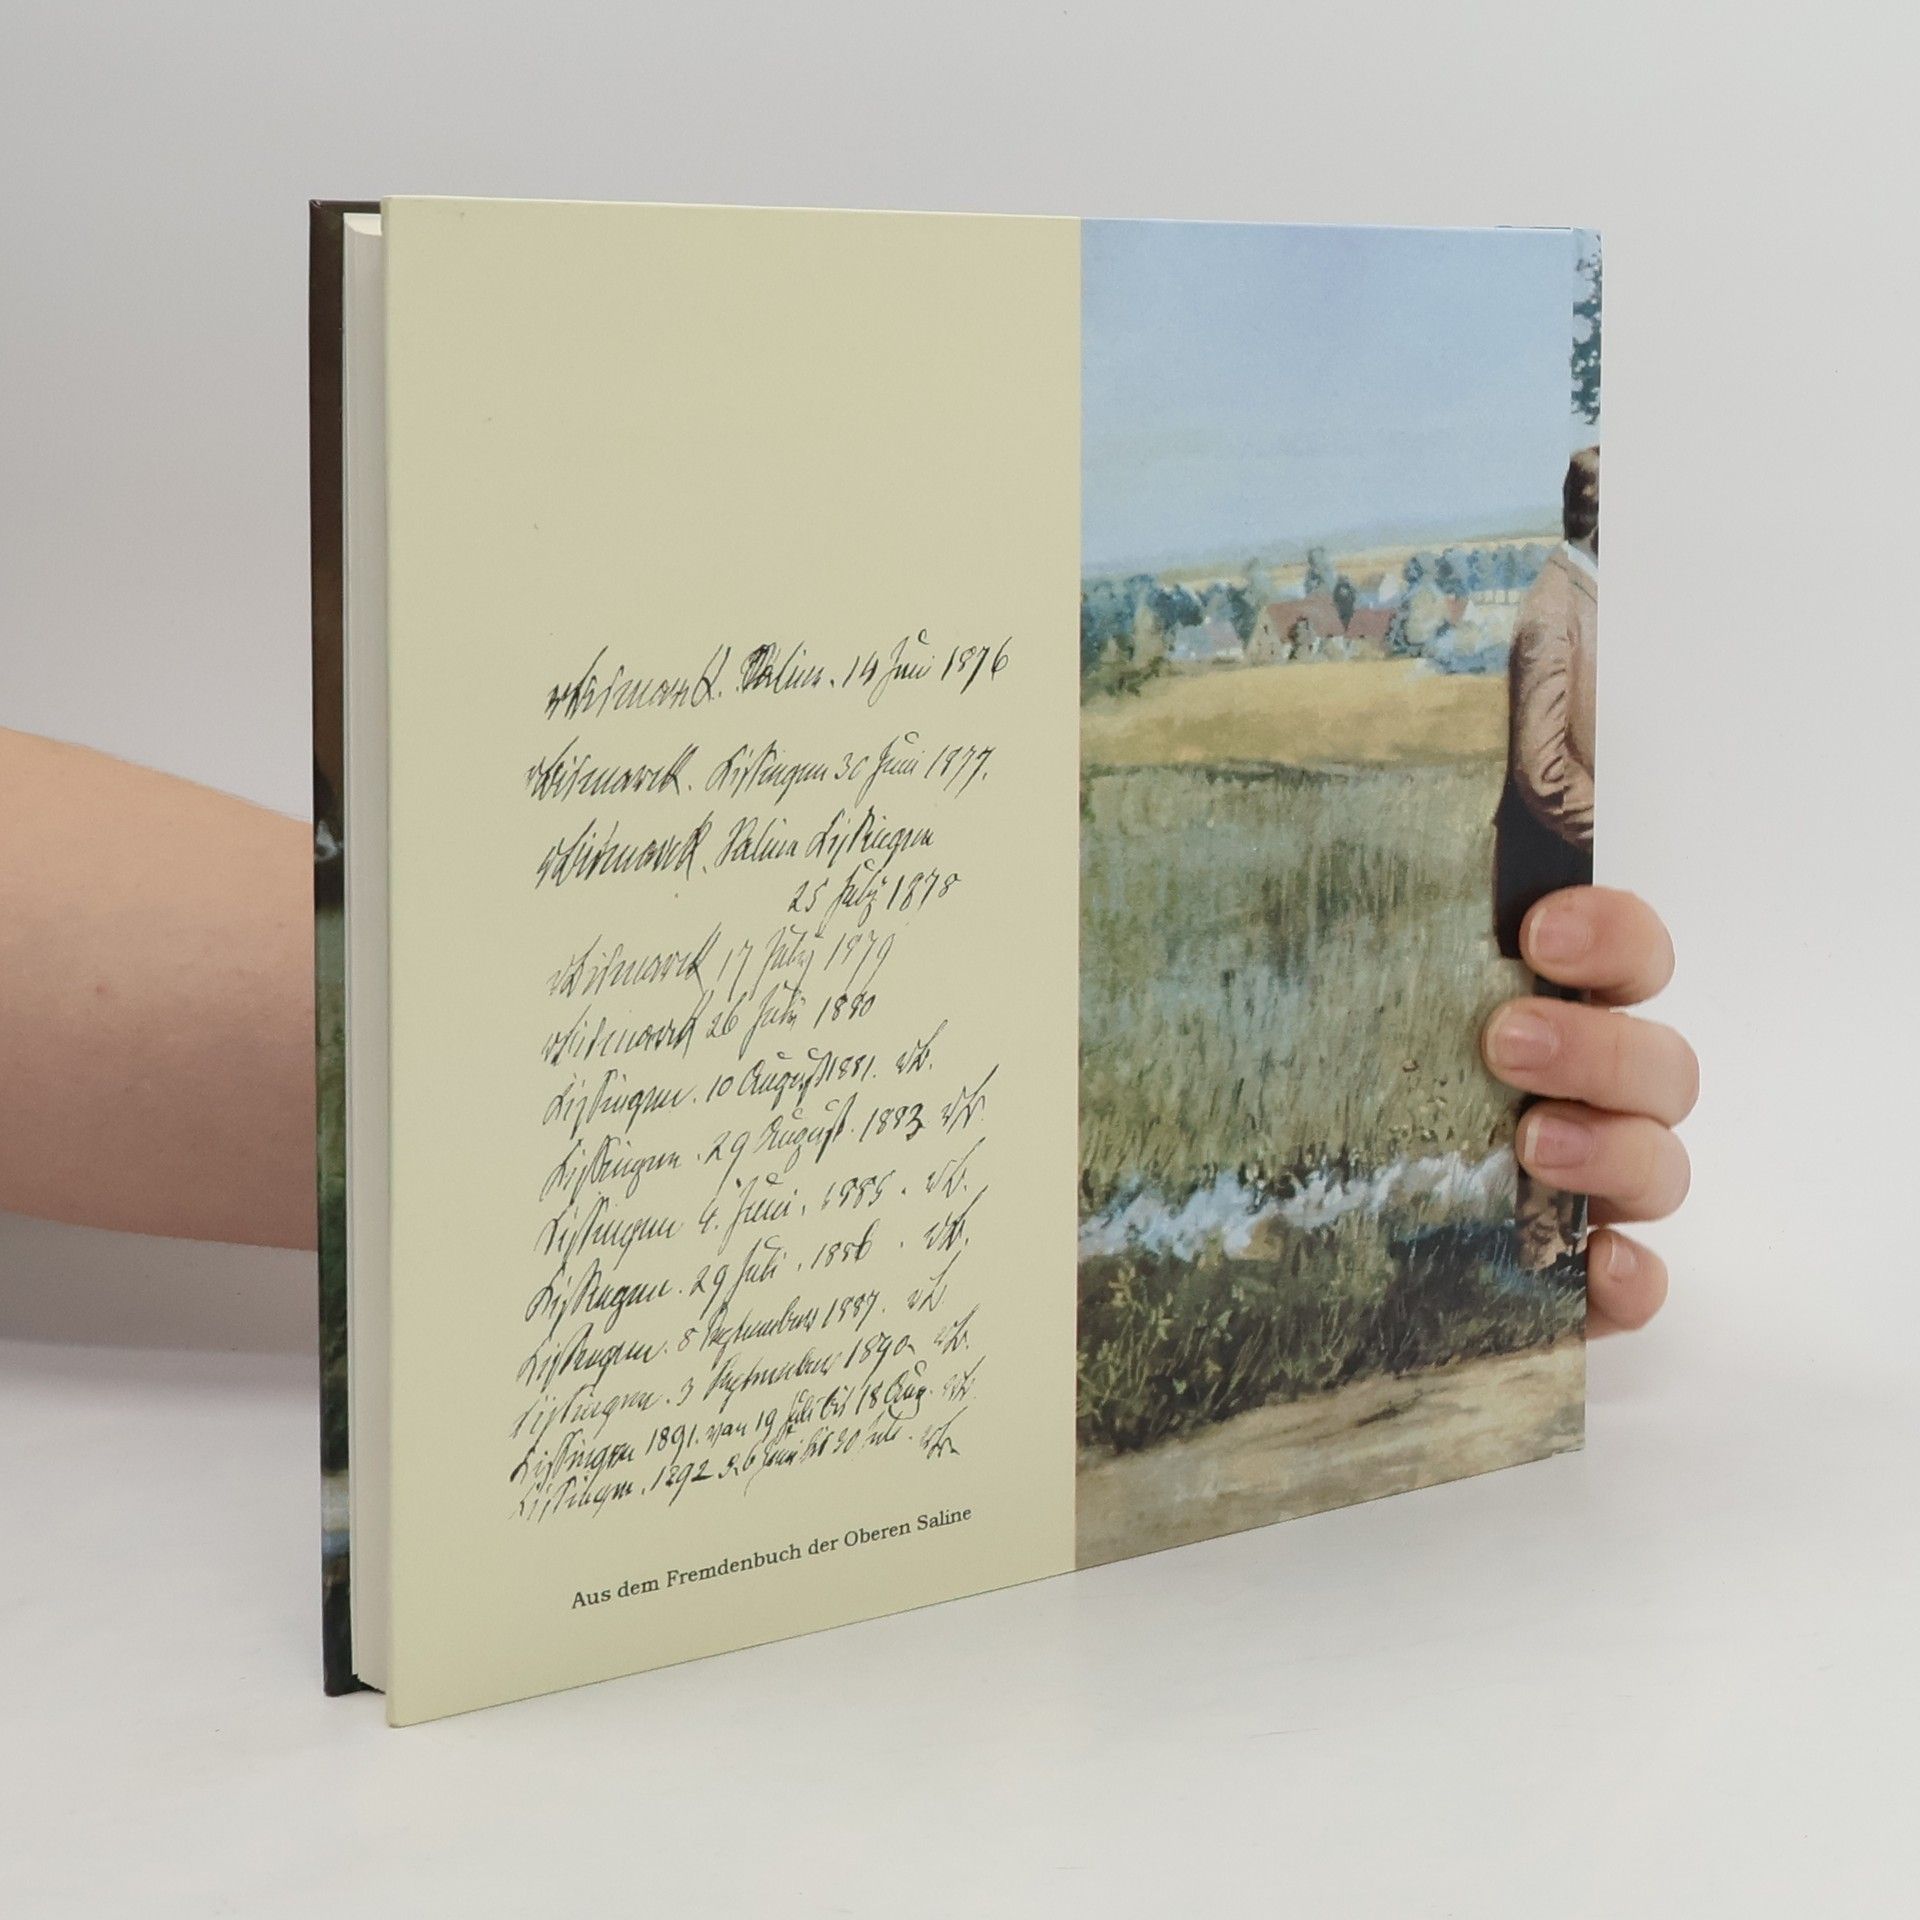 vBismarck. Saline. 14 Juni 1876
vBismarck. Kissingen 30 Juni 1877.
vBismarck. Saline Kissingen
25 July 1878
vBismarck 17 July 1979
vBismarck 26 July 1880
Kissingen. 10 August 1881. vB.
Kissingen. 29 August. 1883 vB.
Kissingen 4. Juni. 1885. vB.
Kissingen. 29 Juli. 1886. vB.
Kissingen. 8 September 1887. vB.
Kissingen. 3 September 1890. vB.
Kissingen 1891. von 19 Juli bis 18 Aug. vB.
Kissingen. 1892 Juni bis 30 Juli. vB.
Aus dem Fremdenbuch der Oberen Saline